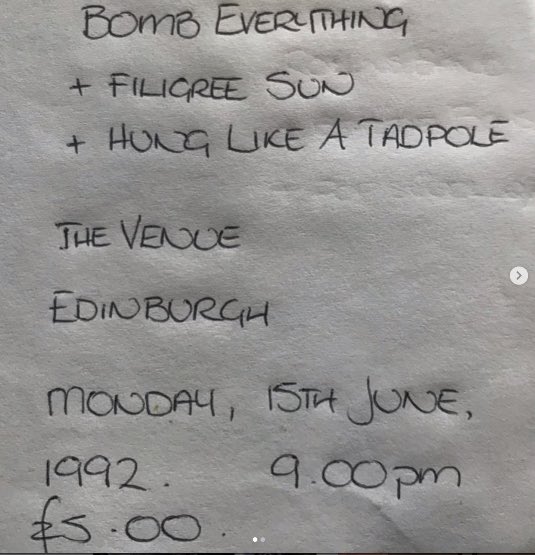 BOMB EVERYTHING
+ FILIGREE SUN
+ HUNG LIKE A TADPOLE
THE VENUE
EDINBURGH
MONDAY, 15TH JUNE,
1992. 9.00pm
£5.00.